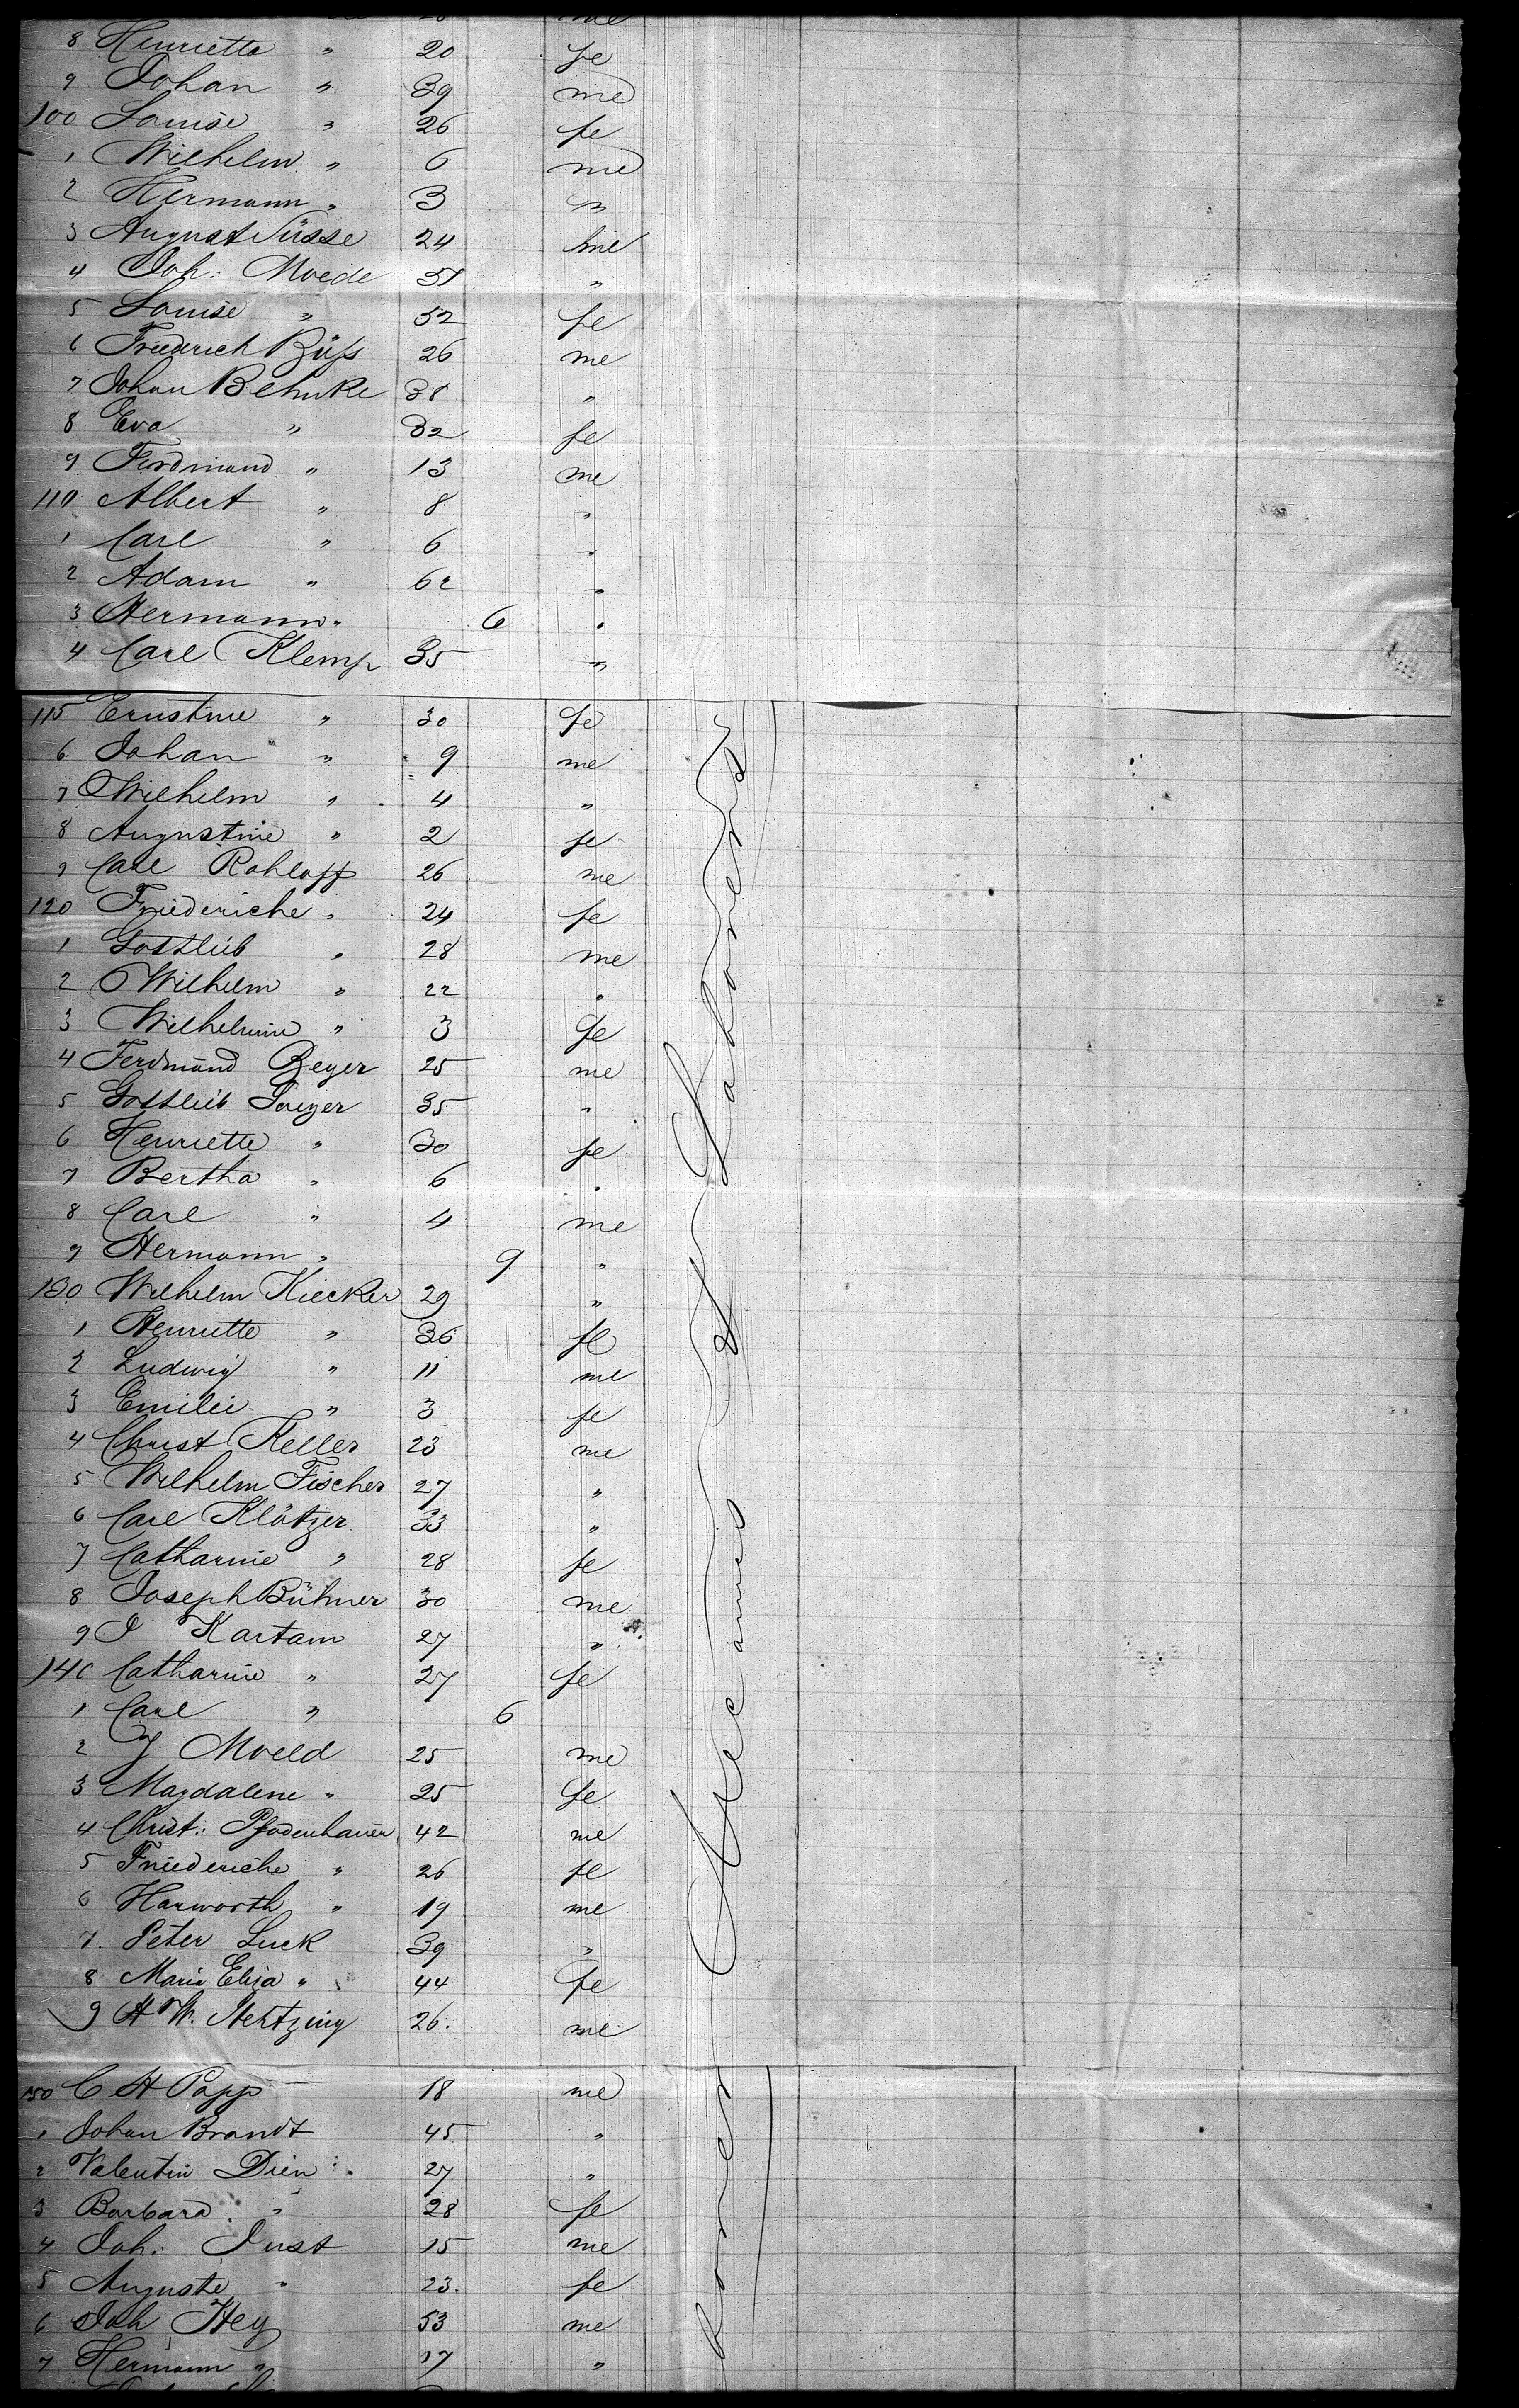 8 Henrietta " 20 fe
9 Johan " 39 me
100 Louise " 26 fe
1 Wilhelm " 6 me
2 Hermann " 3 "
3 August Süsse 24 me
4 Joh: Moede 51 "
5 Louise " 52 fe
6 Friedrich Büss 26 me
7 Johan Behnke 38 "
8 Eva " 32 fe
9 Ferdinand " 13 me
110 Albert " 8 "
1 Carl " 6 "
2 Adam " 62 "
3 Hermann " 6 "
4 Carl Klemp 35 "
115 Ernstine " 30 fe
6 Johan " 9 me
7 Wilhelm " 4 "
8 Augustine " 2 fe
9 Carl Rohloff 26 me
120 Friederiche " 24 fe
1 Gottlieb " 28 me
2 Wilhelm " 22 "
3 Wilhelmine " 3 fe
4 Ferdinand Beyer 25 me
5 Gottlieb 35 "
6 Henriette " 30 fe
7 Bertha " 6 "
8 Carl " 4 me
9 Hermann " 9 "
130 Wilhelm Kiecker 29 "
1 Henriette " 36 fe
2 Ludwig " 11 me
3 Emilie " 3 fe
4 Christ Keller 23 me
5 Wilhelm Fischer 27 "
6 Carl Klötzer 33 "
7 Catharine " 28 fe
8 Joseph Bühner 30 me
9 J Kartam 27 "
140 Catharine " 27 fe
1 Carl " 6
2 J Moeld 25 me
3 Magdalene " 25 fe
4 Christ: Pfodenhauer 42 me
5 Friederiche " 26 fe
6 Harworth " 19 me
7. Peter Luck 39 "
8 Maria Eliza " 44 fe
9 H W. Hertzing 26. me
150 C H Papp 18 me
1 Johan Brandt 45 "
2 Valentin Dien 27 "
3 Barbara " 28 fe
4 Joh: Just 15 me
5 Auguste " 23. fe
6 Joh Hey 53 me
7 Hermann " 17 "
Laborers